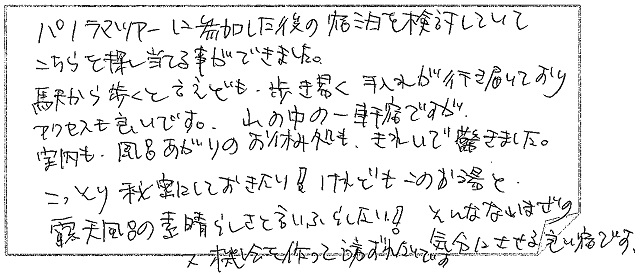 パノラマツアーに参加した後の宿泊を検討していて
こちらを探し当てる事ができました。
駅から歩くと言えども、歩き易く手入れが行き届いており
アクセスも良いです。山の中の一軒宿ですが、
室内も、風呂あがりのお休み処も、きれいで驚きました。
こっそり秘密にしておきたい!けれどもこのお湯と、
露天風呂の素晴らしさを言いふらしたい!そんな
気分にさせる良い宿です。
又機会を作って